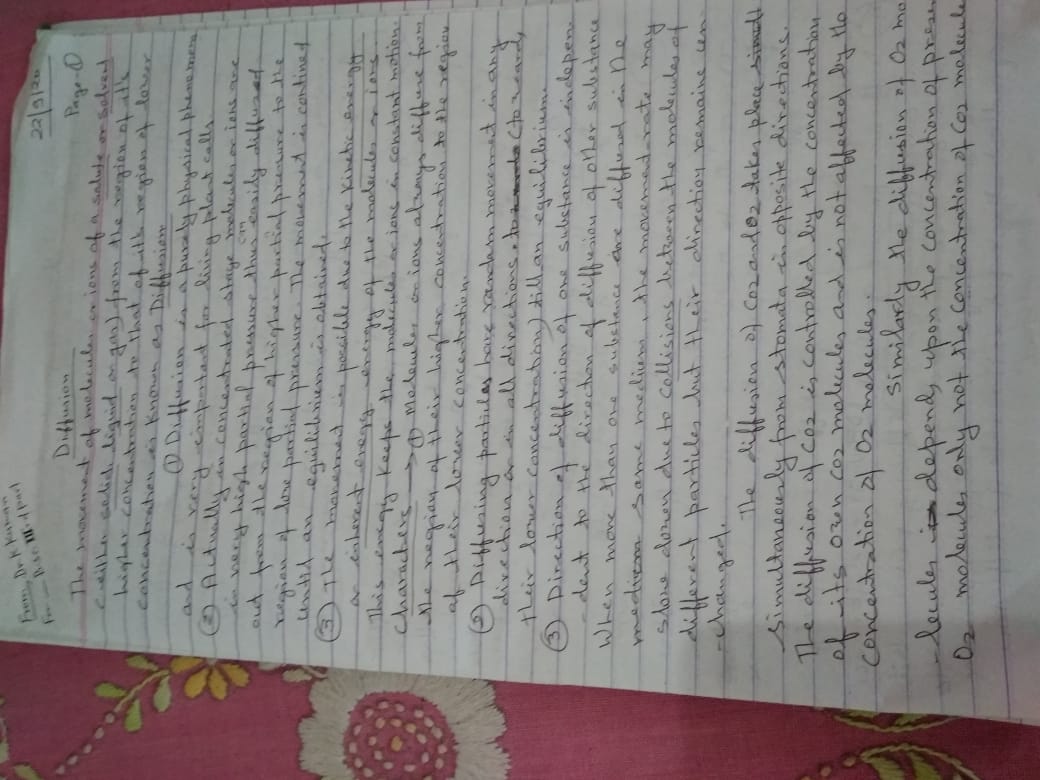 From Dr. K Kumar
For — B.Sc. III (part)
22/9/20
Diffusion Page-1
The movement of molecules or ions of a salute or solvent
(either solid, liquid or gas) from the region of it's
higher concentration to that of it's region of lower
concentration is known as Diffusion
① Diffusion is a purely physical phenomena
and is very important for living plant cells
② Actually in concentrated stage molecules or ions are
in very high partial pressure thus easily diffused
out from the region of higher partial pressure to the
region of low partial pressure. The movement is contined
until an equilibrium is obtained.
③ The movement is possible due to the kinetic energy
or inherent energy of the molecules or ions
This energy keeps the molecules or ions in constant motion.
Characters → ① Molecules or ions always diffuse from
the region of their higher concentration to the region
of their lower concentration.
② Diffusing particles have random movement in any
direction or in all directions (towards
their lower concentration) till an equilibrium.
③ Direction of diffusion of one substance is indepen
-dent to the direction of diffusion of other substance
When more than one substance are diffused in the
same medium, the movement rate may
slow down due to collisions between the molecules of
different particles but their direction remaine un
-changed.
The diffusion of CO2 and O2 takes place
simultaneously from stomata in opposite directions.
The diffusion of CO2 is controlled by the concentration
of its own CO2 molecules and is not affected by the
concentration of O2 molecules.
Similarly the diffusion of O2 mo
-lecules depends upon the concentration of presen
O2 molecules only not the concentration of CO2 molecule